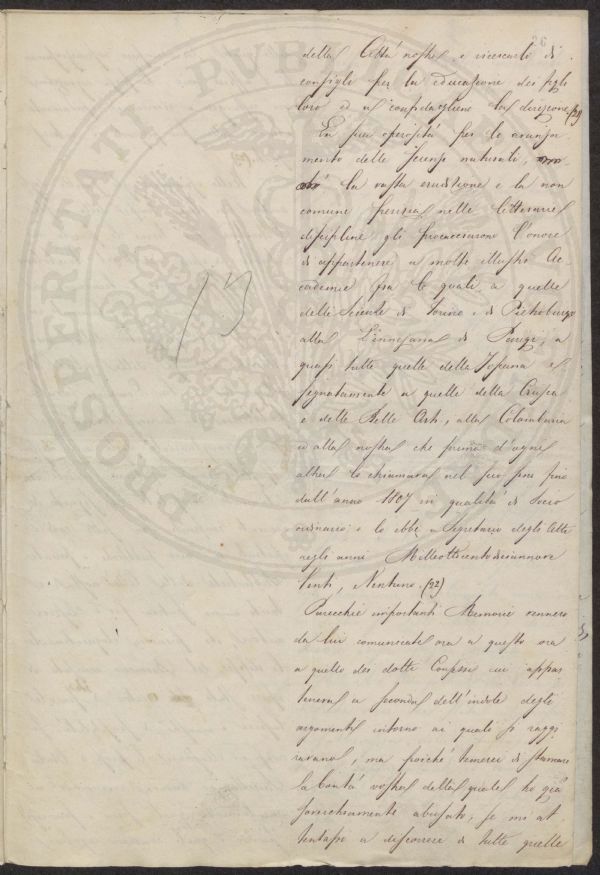 26
della Città nostra e ricercarlo di
consiglio per la educazione dei figli
loro ed a confidargliene la direzione (21)
La sua operosità per lo avanza-
mento delle scienze naturali,
la vasta erudizione e la non
comune perizia nelle letterarie
discipline gli procacciarono l'onore
di appartenere a molte illustri Ac-
cademie fra le quali a quelle
delle Scienze di Torino e di Pietroburgo
alla Linneana di Parigi, a
quasi tutte quelle della Toscana e
segnatamente a quelle della Crusca
e delle Belle Arti, alla Colombaria
ed alla nostra che prima d'ogni
altra lo chiamava nel suo seno fino
dall'anno 1807 in qualità di Socio
ordinario e lo ebbe a Segretario degli Atti
negli anni Milleottocentodiciannove
Venti, Ventuno. (22)
Parecchie importanti Memorie vennero
da lui comunicate ora a questo ora
a quello dei dotti Consessi cui appar-
teneva a seconda dell'indole degli
argomenti intorno ai quali si raggi-
ravano, ma poiché temerei di stancare
la bontà vostra della quale ho già
soverchiamente abusato, se mi at-
tentassi a discorrere di tutte quelle
13
PROSPERITATI PVB